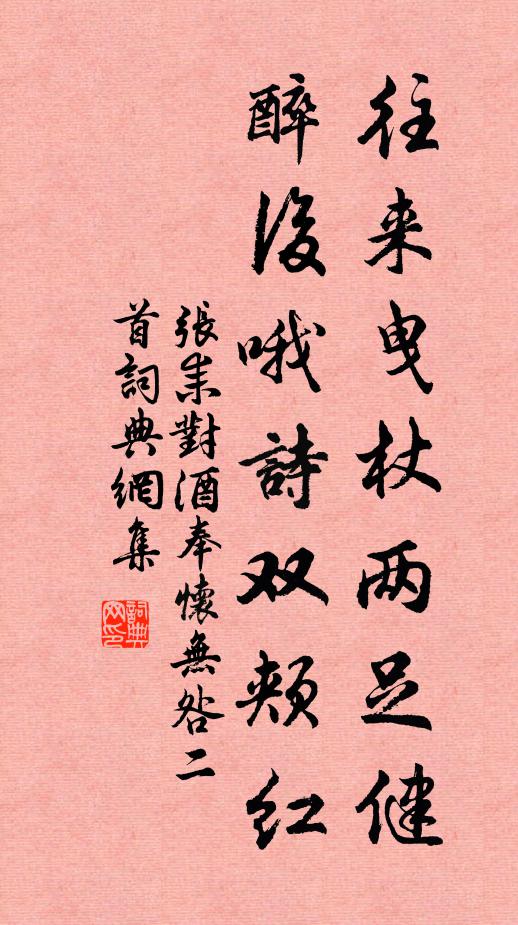 往来曳杖两足健
醉後哦詩双頰红
張耒對酒奉懷無咎二
首詞典網集
詞典网印